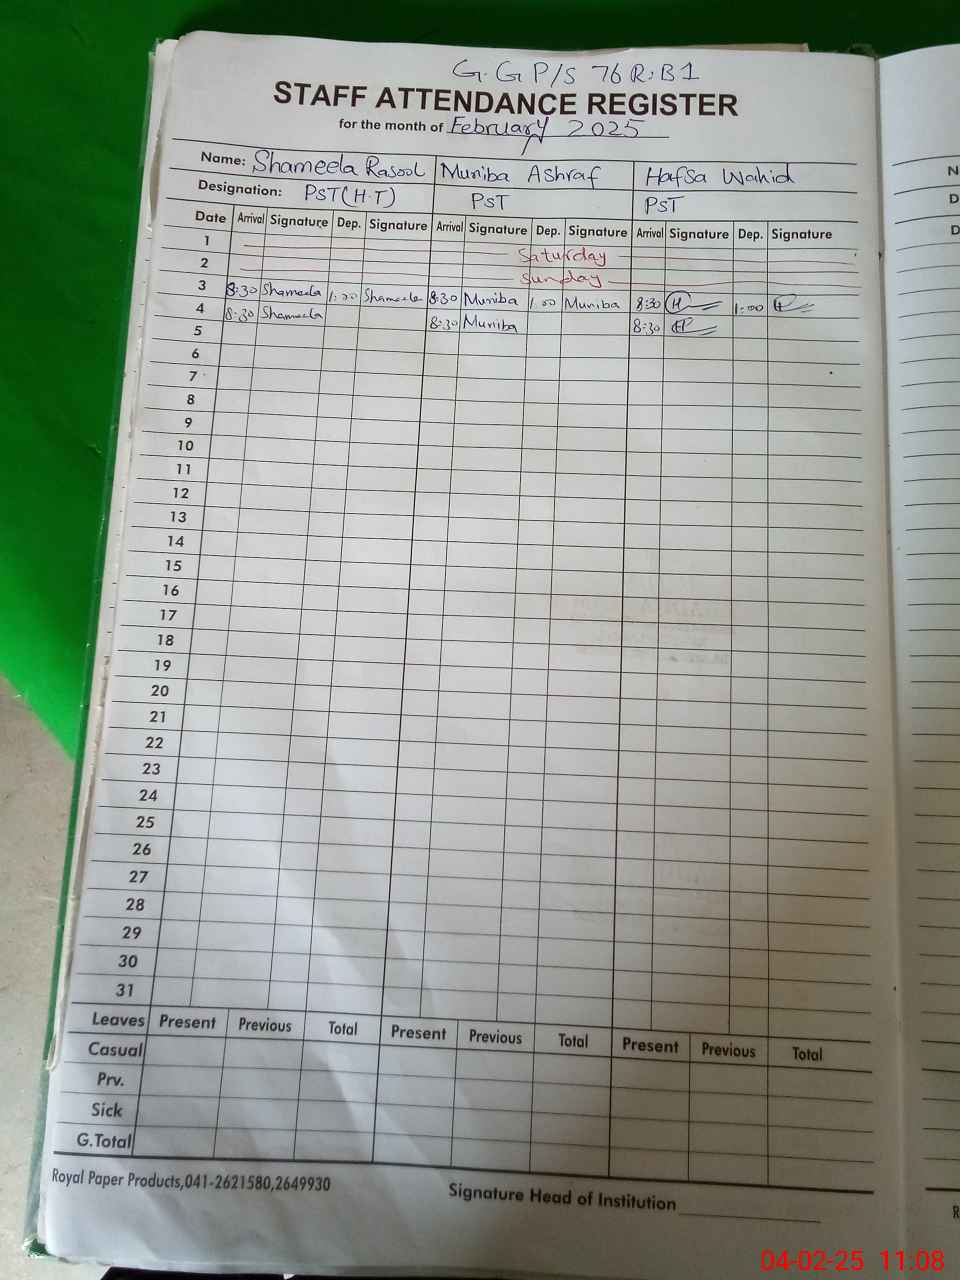 G.G P/S 76 R.B 1
STAFF ATTENDANCE REGISTER
for the month of February 2025
Name: Shameela Rasool Muniba Ashraf Hafsa Wahid
Designation: PST (H.T) PST PST
Date Arrival Signature Dep. Signature Arrival Signature Dep. Signature Arrival Signature Dep. Signature
1 Saturday
2 Sunday
3 8:30 Shameela 1:00 Shameela 8:30 Muniba 1:00 Muniba 8:30 1:00
4 8:30 Shameela 8:30 Muniba 8:30
5
6
7
8
9
10
11
12
13
14
15
16
17
18
19
20
21
22
23
24
25
26
27
28
29
30
31
Leaves Present Previous Total Present Previous Total Present Previous Total
Casual
Prv.
Sick
G.Total
Royal Paper Products,041-2621580,2649930
Signature Head of Institution
04-02-25 11:08